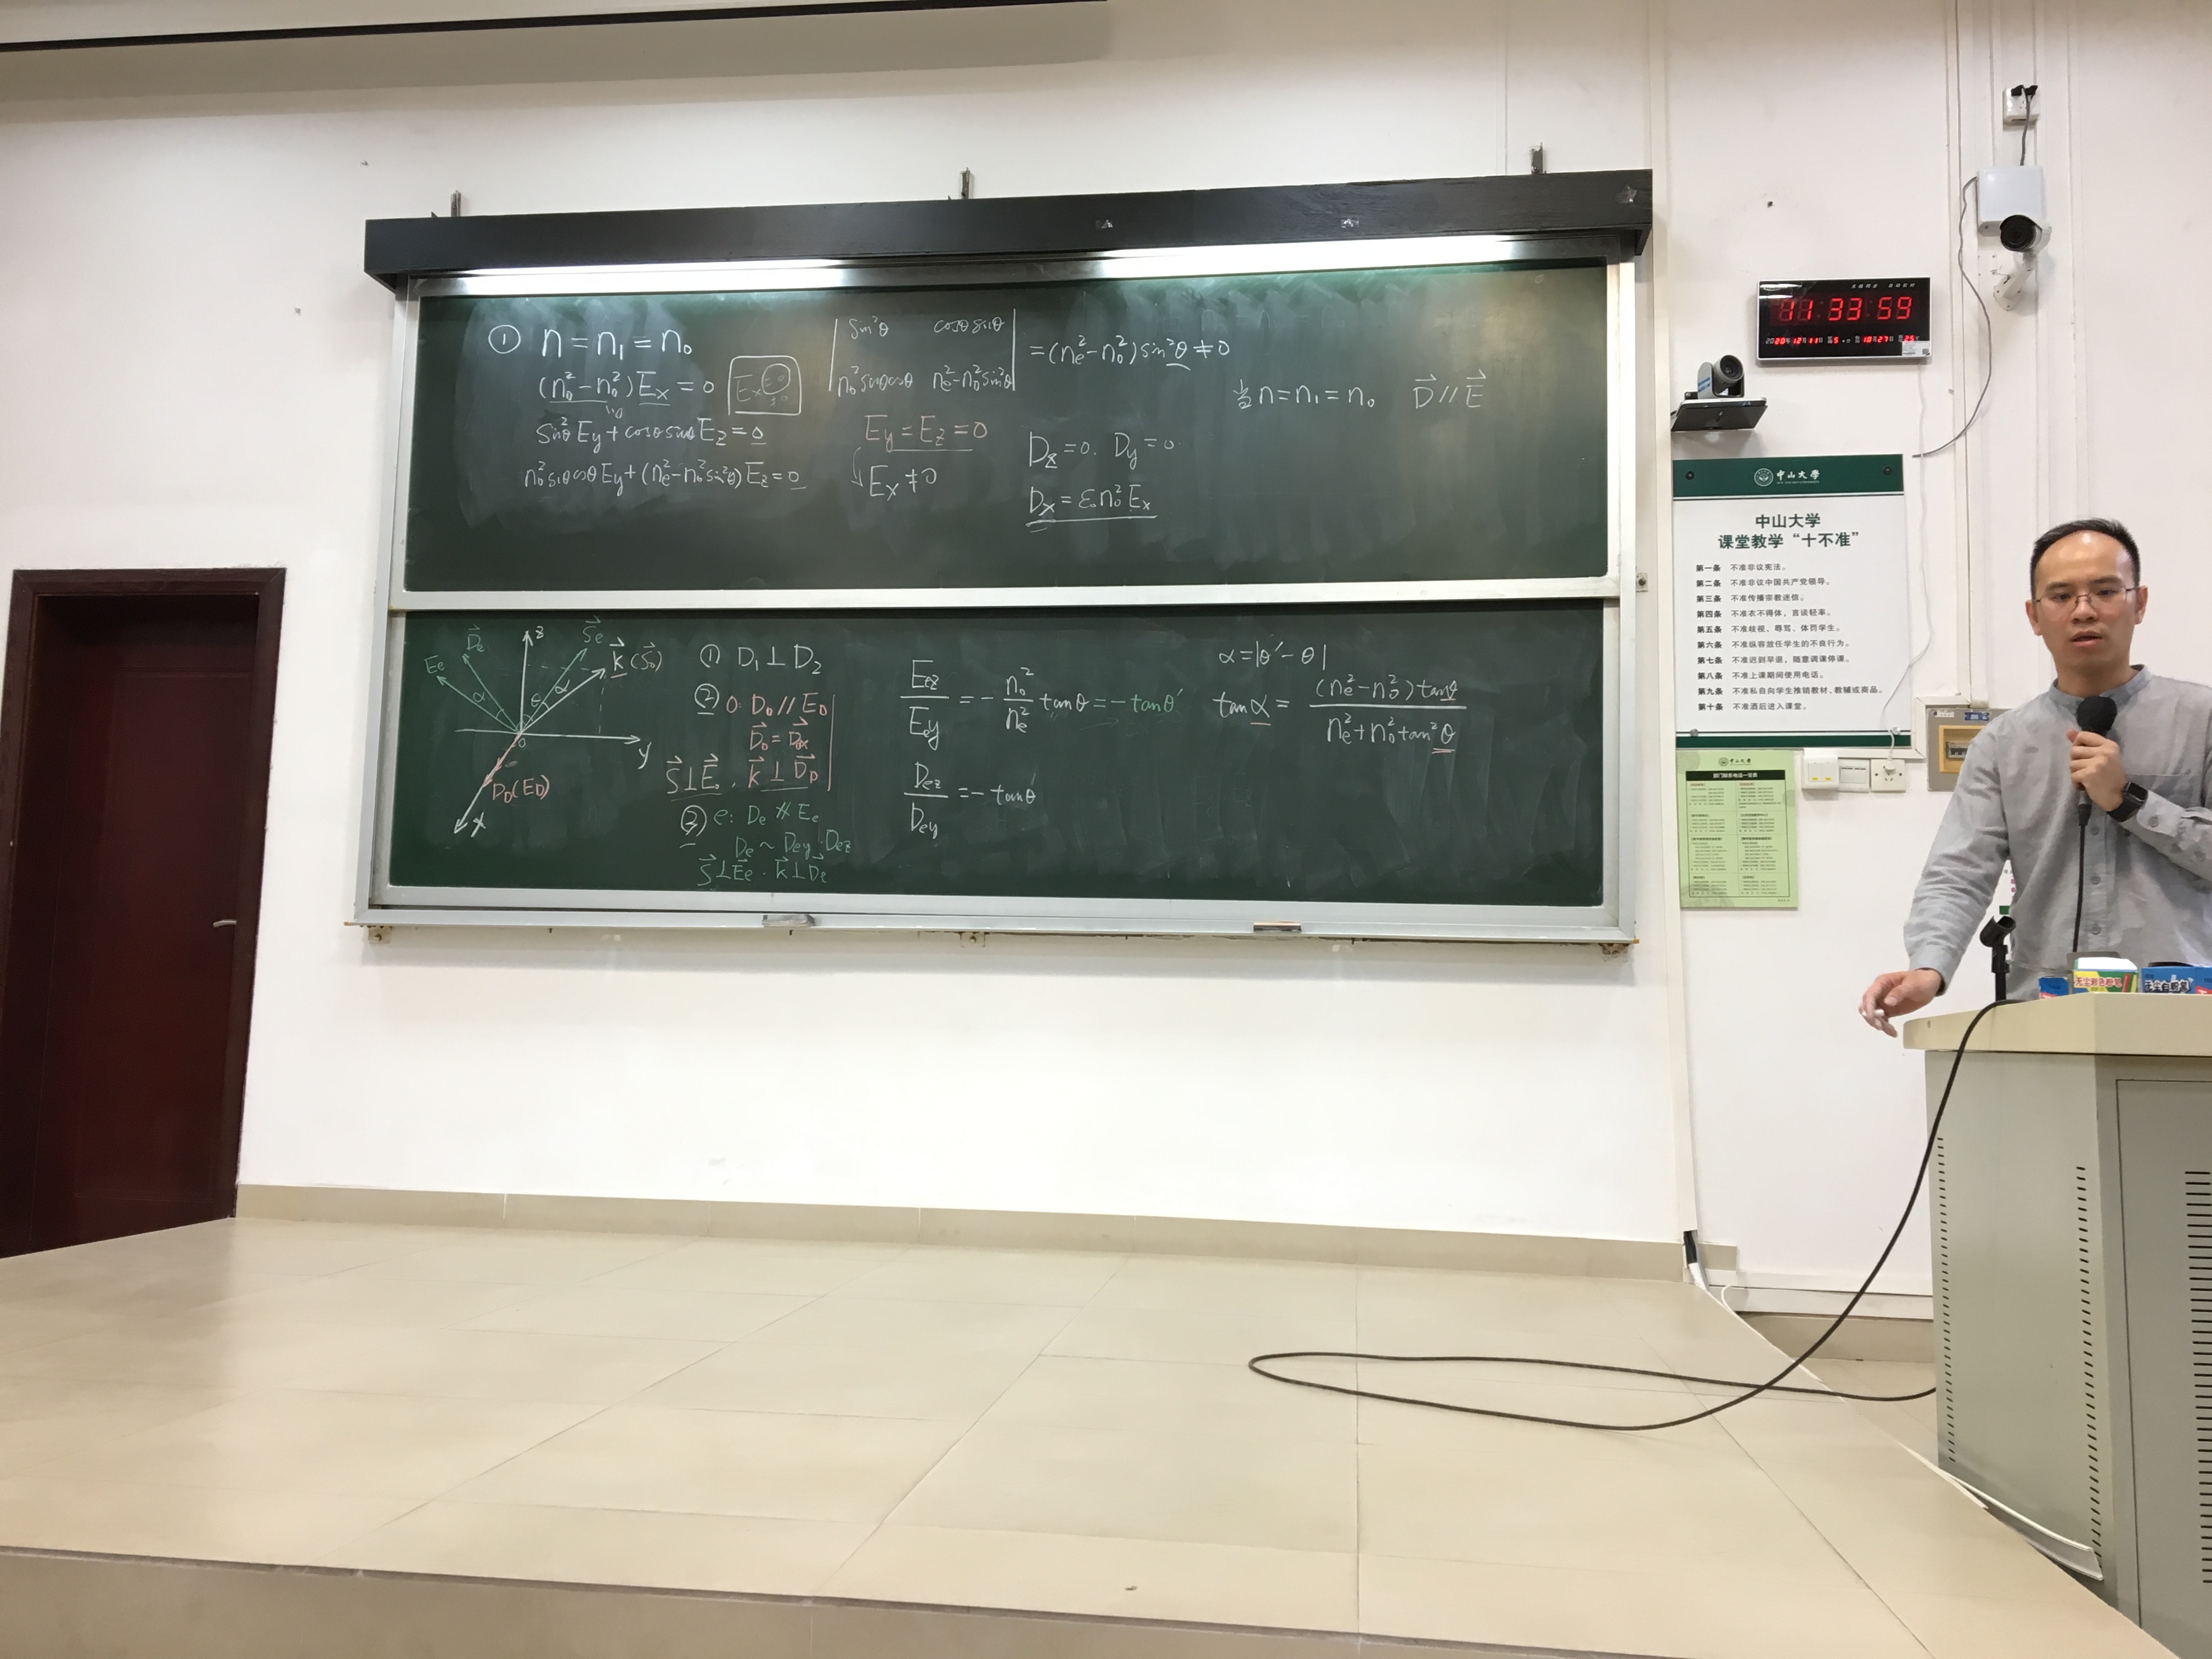 ① n = n₁ = n₀
(n₀² - n₀²) Eₓ = 0
sin²θ Ey + cosθ sinθ Ez = 0
n₀² sinθ cosθ Ey + (nₑ² - n₀² sin²θ) Ez = 0
sin²θ cosθ sinθ
n₀² sinθ cosθ nₑ² - n₀² sin²θ
= (nₑ² - n₀²) sin²θ ≠ 0
Ey = Ez = 0
Eₓ ≠ 0
Dz = 0. Dy = 0
Dₓ = ε₀ n₀² Eₓ
当 n = n₁ = n₀ D⃗ // E⃗
z
y
x
o
Eₑ
D⃗ₑ
S⃗ₑ
k⃗ (S⃗₀)
α
θ
α
D₀ (E₀)
① D₁ ⊥ D₂
② o: D₀ // E₀
D⃗₀ = D⃗₀ₓ
S⃗ ⊥ E⃗₀ . k⃗ ⊥ D⃗₀
③ e: Dₑ ∦ Eₑ
Dₑ ~ Dₑy . Dₑz
S⃗ ⊥ E⃗ₑ . k⃗ ⊥ D⃗ₑ
Eₑz / Eₑy = - n₀² / nₑ² tanθ = - tanθ'
Dₑz / Dₑy = - tanθ
α = |θ' - θ|
tanα = (nₑ² - n₀²) tanθ / nₑ² + n₀² tan²θ
11:33:59
2020年12月11日
中山大學
中山大学
课堂教学“十不准”
第一条 不准非议宪法。
第二条 不准非议中国共产党领导。
第三条 不准传播宗教迷信。
第四条 不准衣不得体，言谈轻率。
第五条 不准歧视、辱骂、体罚学生。
第六条 不准纵容放任学生的不良行为。
第七条 不准迟到早退，随意调课停课。
第八条 不准上课期间使用电话。
第九条 不准私自向学生推销教材、教辅或商品。
第十条 不准酒后进入课堂。
中山大學